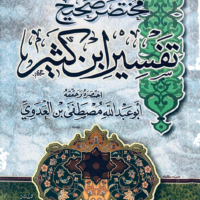 مختصر صحيح
تفسير ابن كثير
اختصره وحققه
أبو عبد الله مصطفى بن العدوي